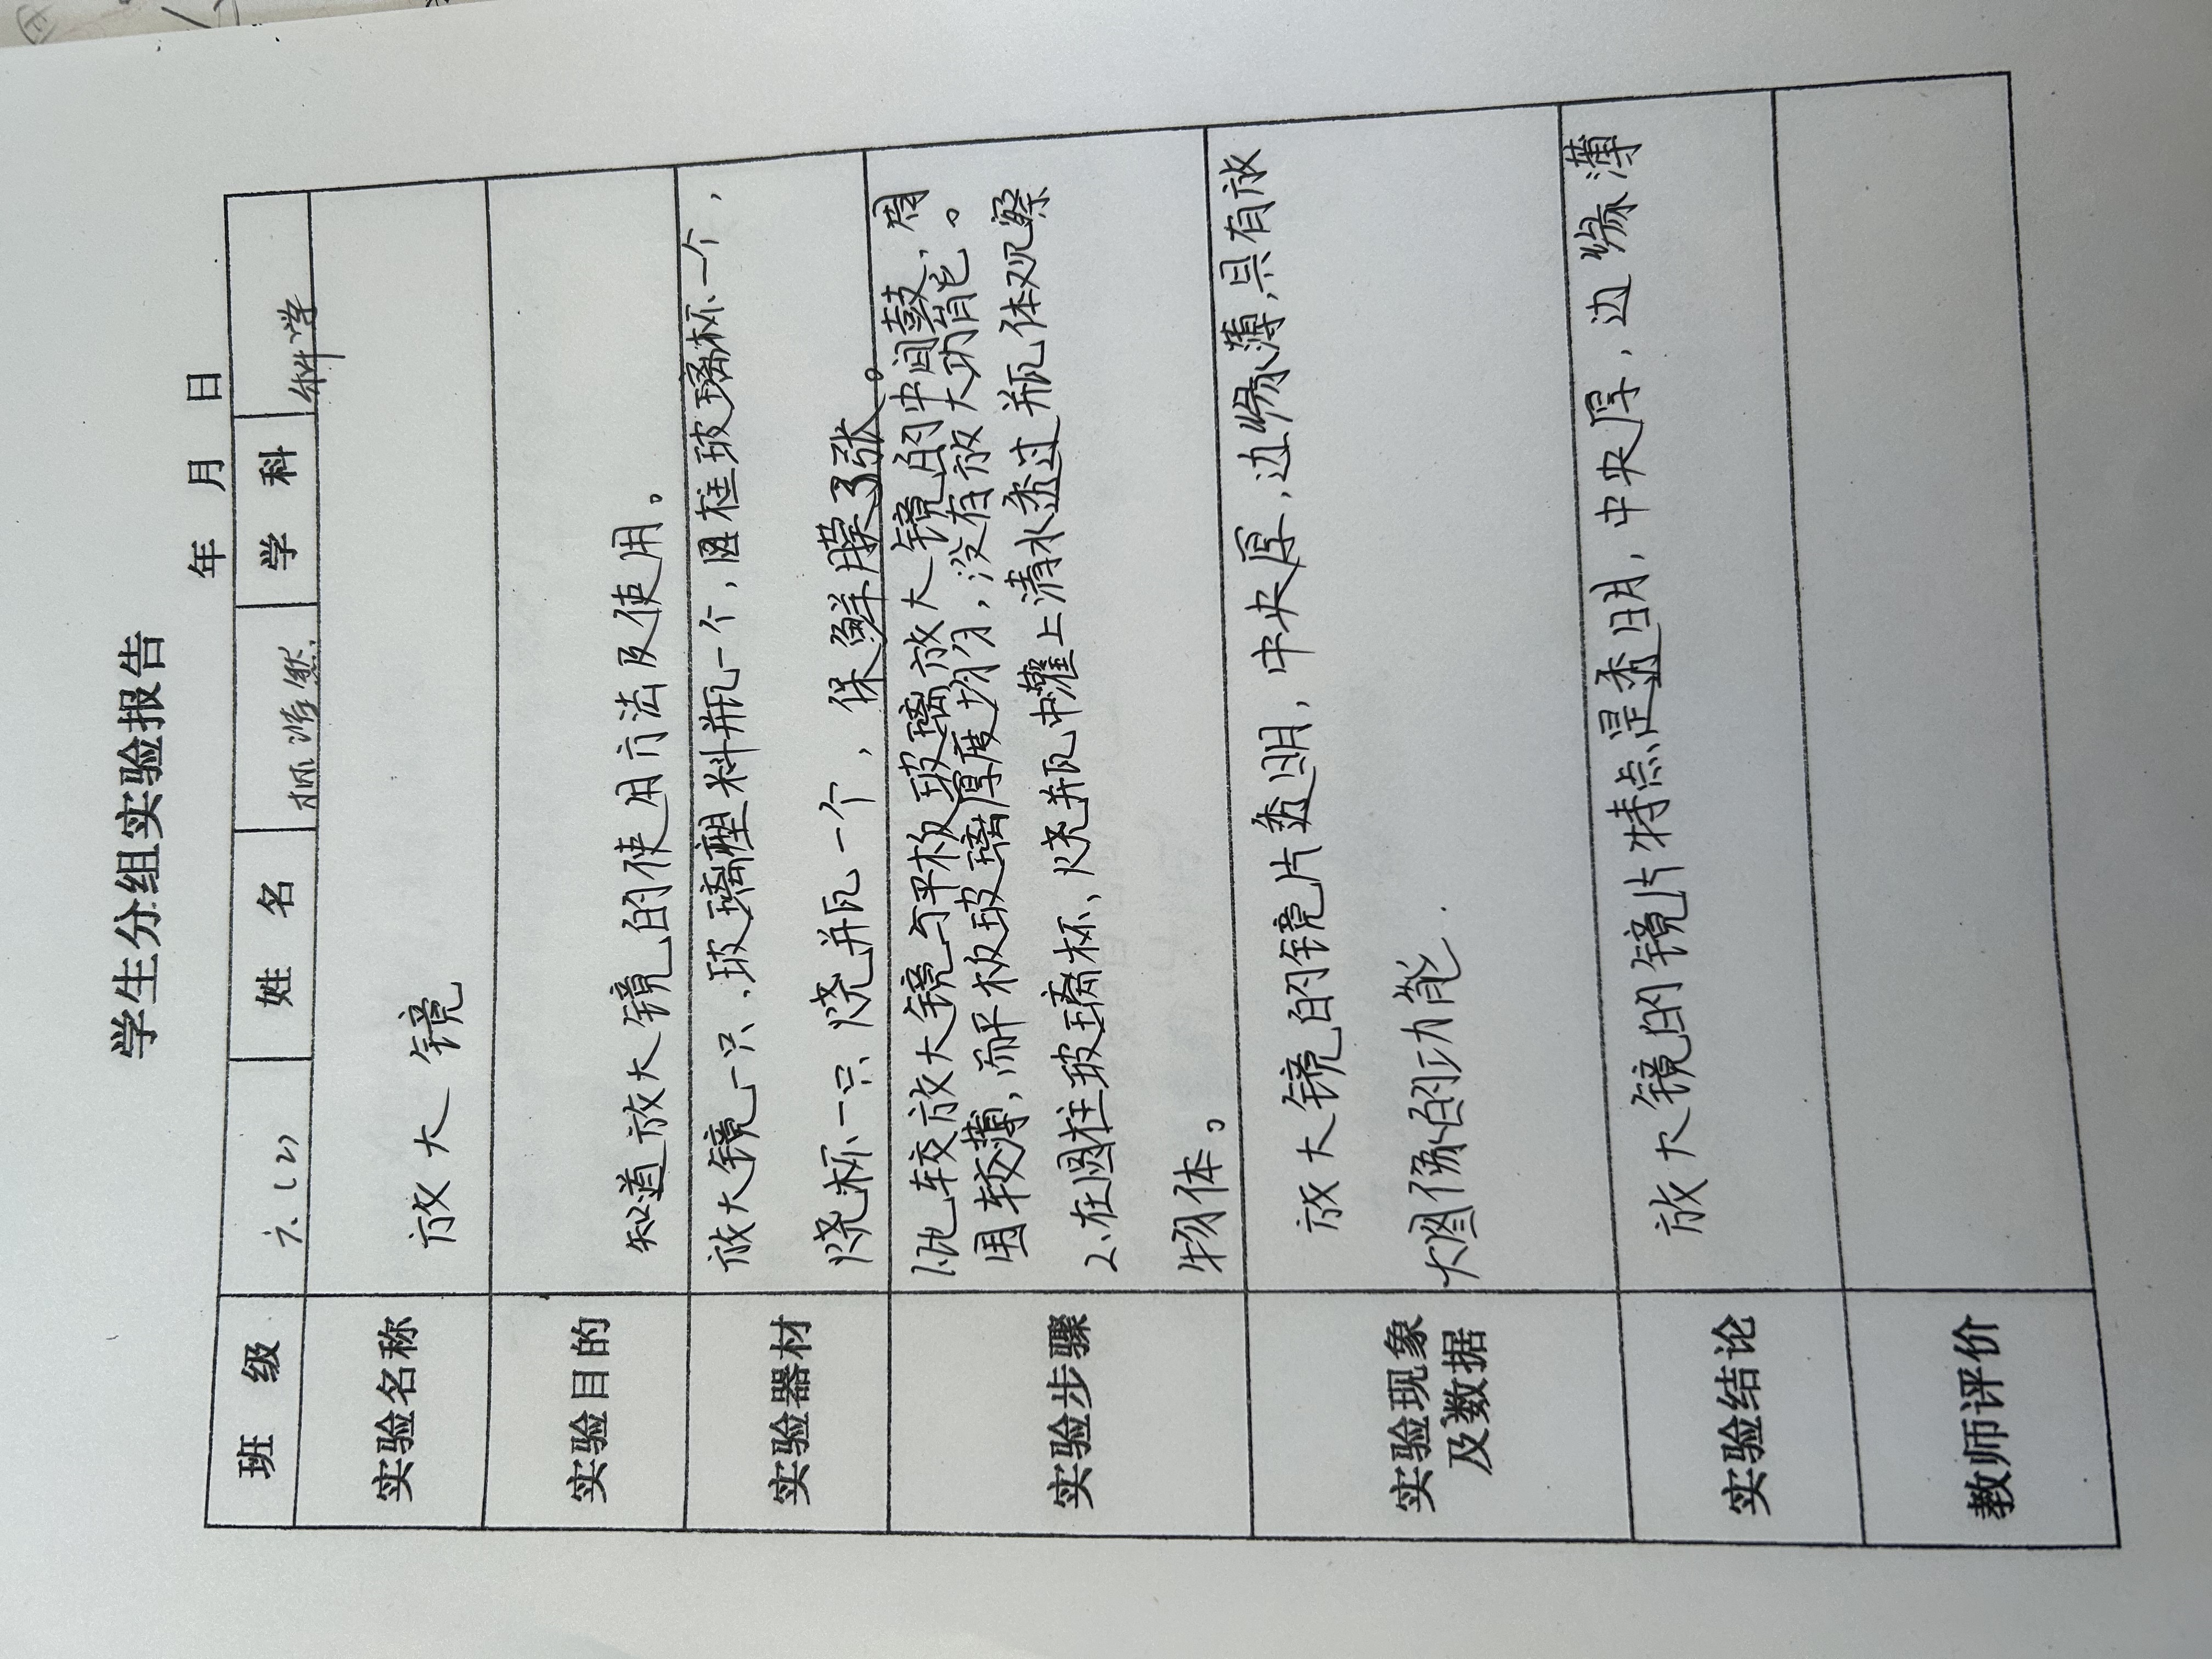 学生分组实验报告
年 月 日
班 级 六.(2) 姓 名 学 科 科学
实验名称 放大镜
实验目的 知道放大镜的使用方法及使用。
实验器材 放大镜一只、玻璃塑料瓶一个，圆柱玻璃杯一个，
烧杯一只、烧并瓦一个，保鲜膜3张。
实验步骤 1.比较放大镜与平板玻璃放大镜的中间鼓，周
围较薄，而平板玻璃厚度均匀，没有放大功能。
2.在圆柱玻璃杯、烧瓶中灌上清水透过瓶体观察
物体。
实验现象及数据 放大镜的镜片透明，中央厚，边缘薄，具有放
大图像的功能.
实验结论 放大镜的镜片特点是透明，中央厚，边缘薄
教师评价